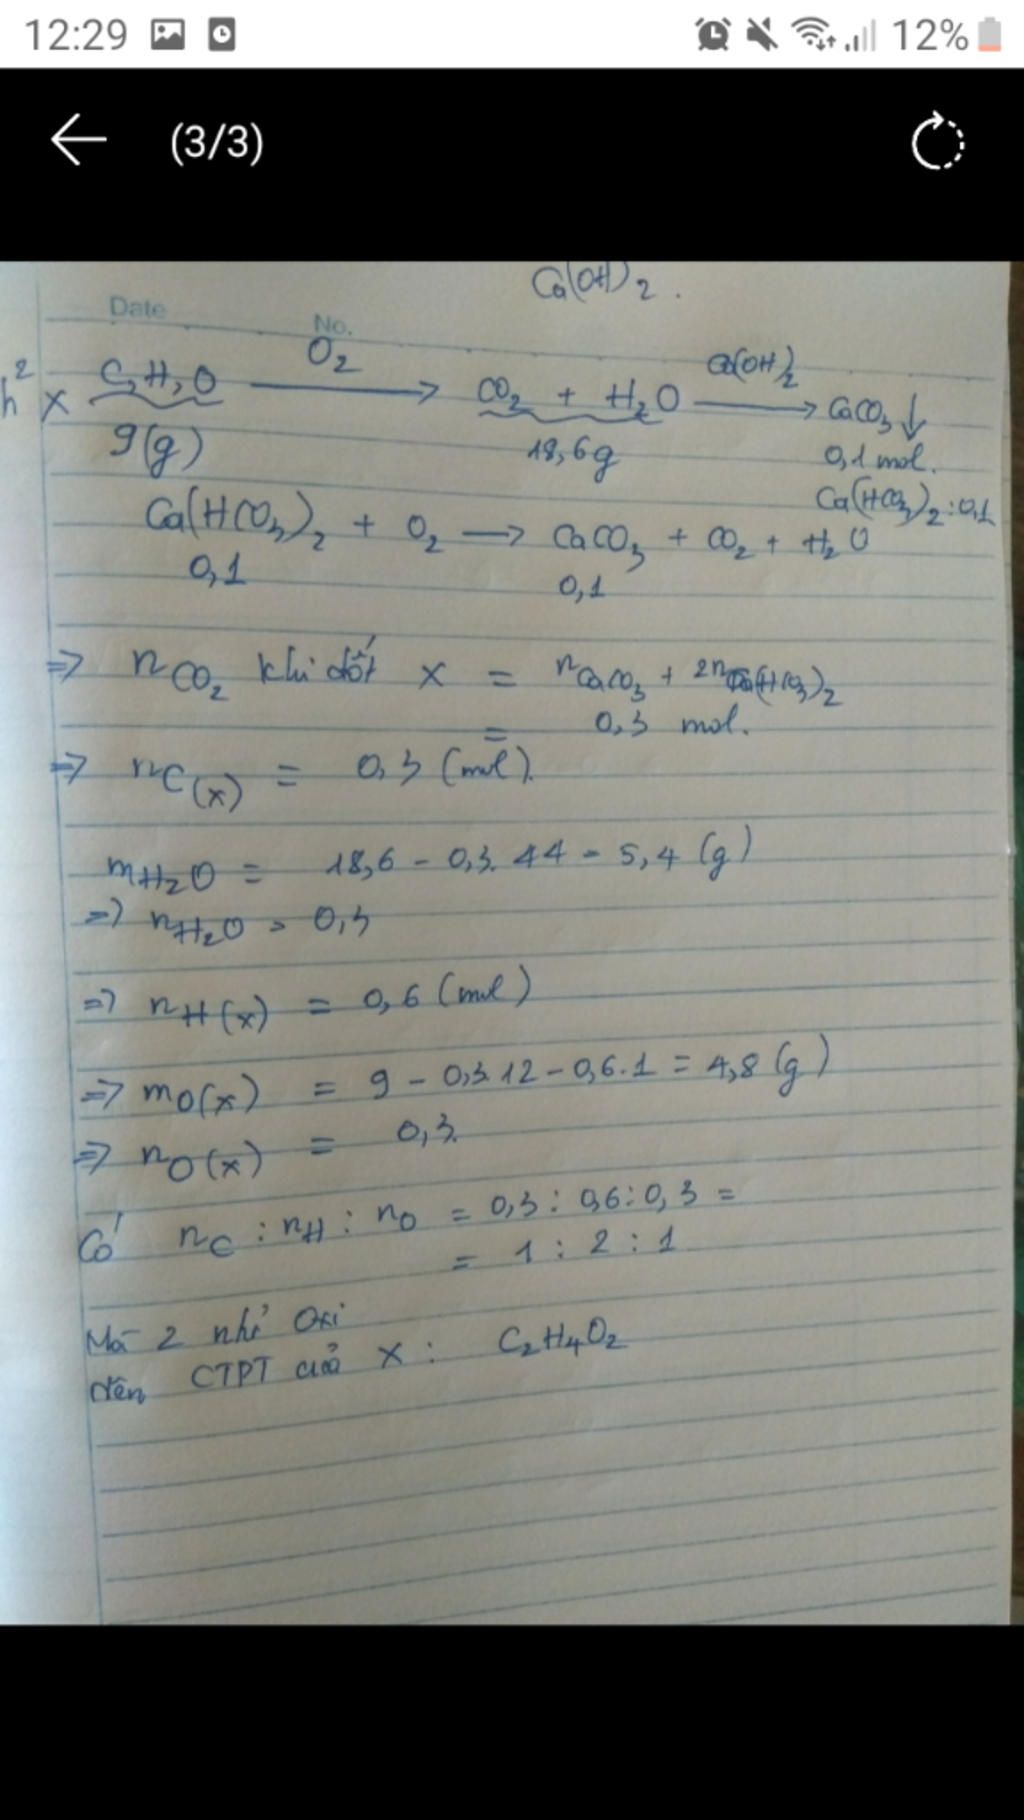 12:29 12%
(3/3)
Ca(OH)2.
Date No.
h2 X C,H,O O2 → CO2 + H2O Ca(OH)2 → CaCO3↓
9(g) 18,6g 0,1 mol.
Ca(HCO3)2:0,1
Ca(HCO3)2 + O2 → CaCO3 + CO2 + H2O
0,1 0,1
=> nCO2 khi đốt x = nCaCO3 + 2nCa(HCO3)2
= 0,3 mol.
=> nC(x) = 0,3 (mol).
mH2O = 18,6 - 0,3.44 = 5,4 (g)
=> nH2O = 0,3
=> nH(x) = 0,6 (mol)
=> mO(x) = 9 - 0,3.12 - 0,6.1 = 4,8 (g)
=> nO(x) = 0,3.
Có nC : nH : nO = 0,3 : 0,6 : 0,3 =
= 1 : 2 : 1
Mà 2 nhỉ Oxi
CTPT của x : C2H4O2